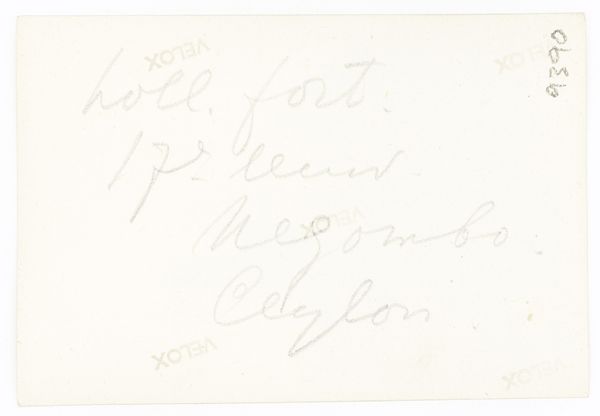 holl. fort.
17e eeuw.
Negombo.
Ceylon
9390
VELOX
VELOX
VELOX
VELOX
VELOX